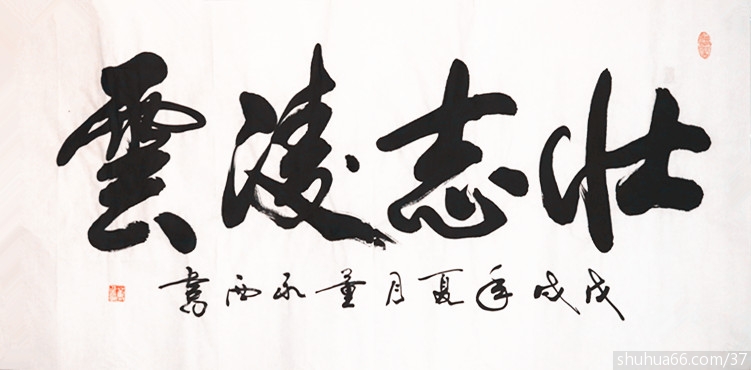 壮志凌雲
戊戌年夏月董永西書
shuhua66.com/37